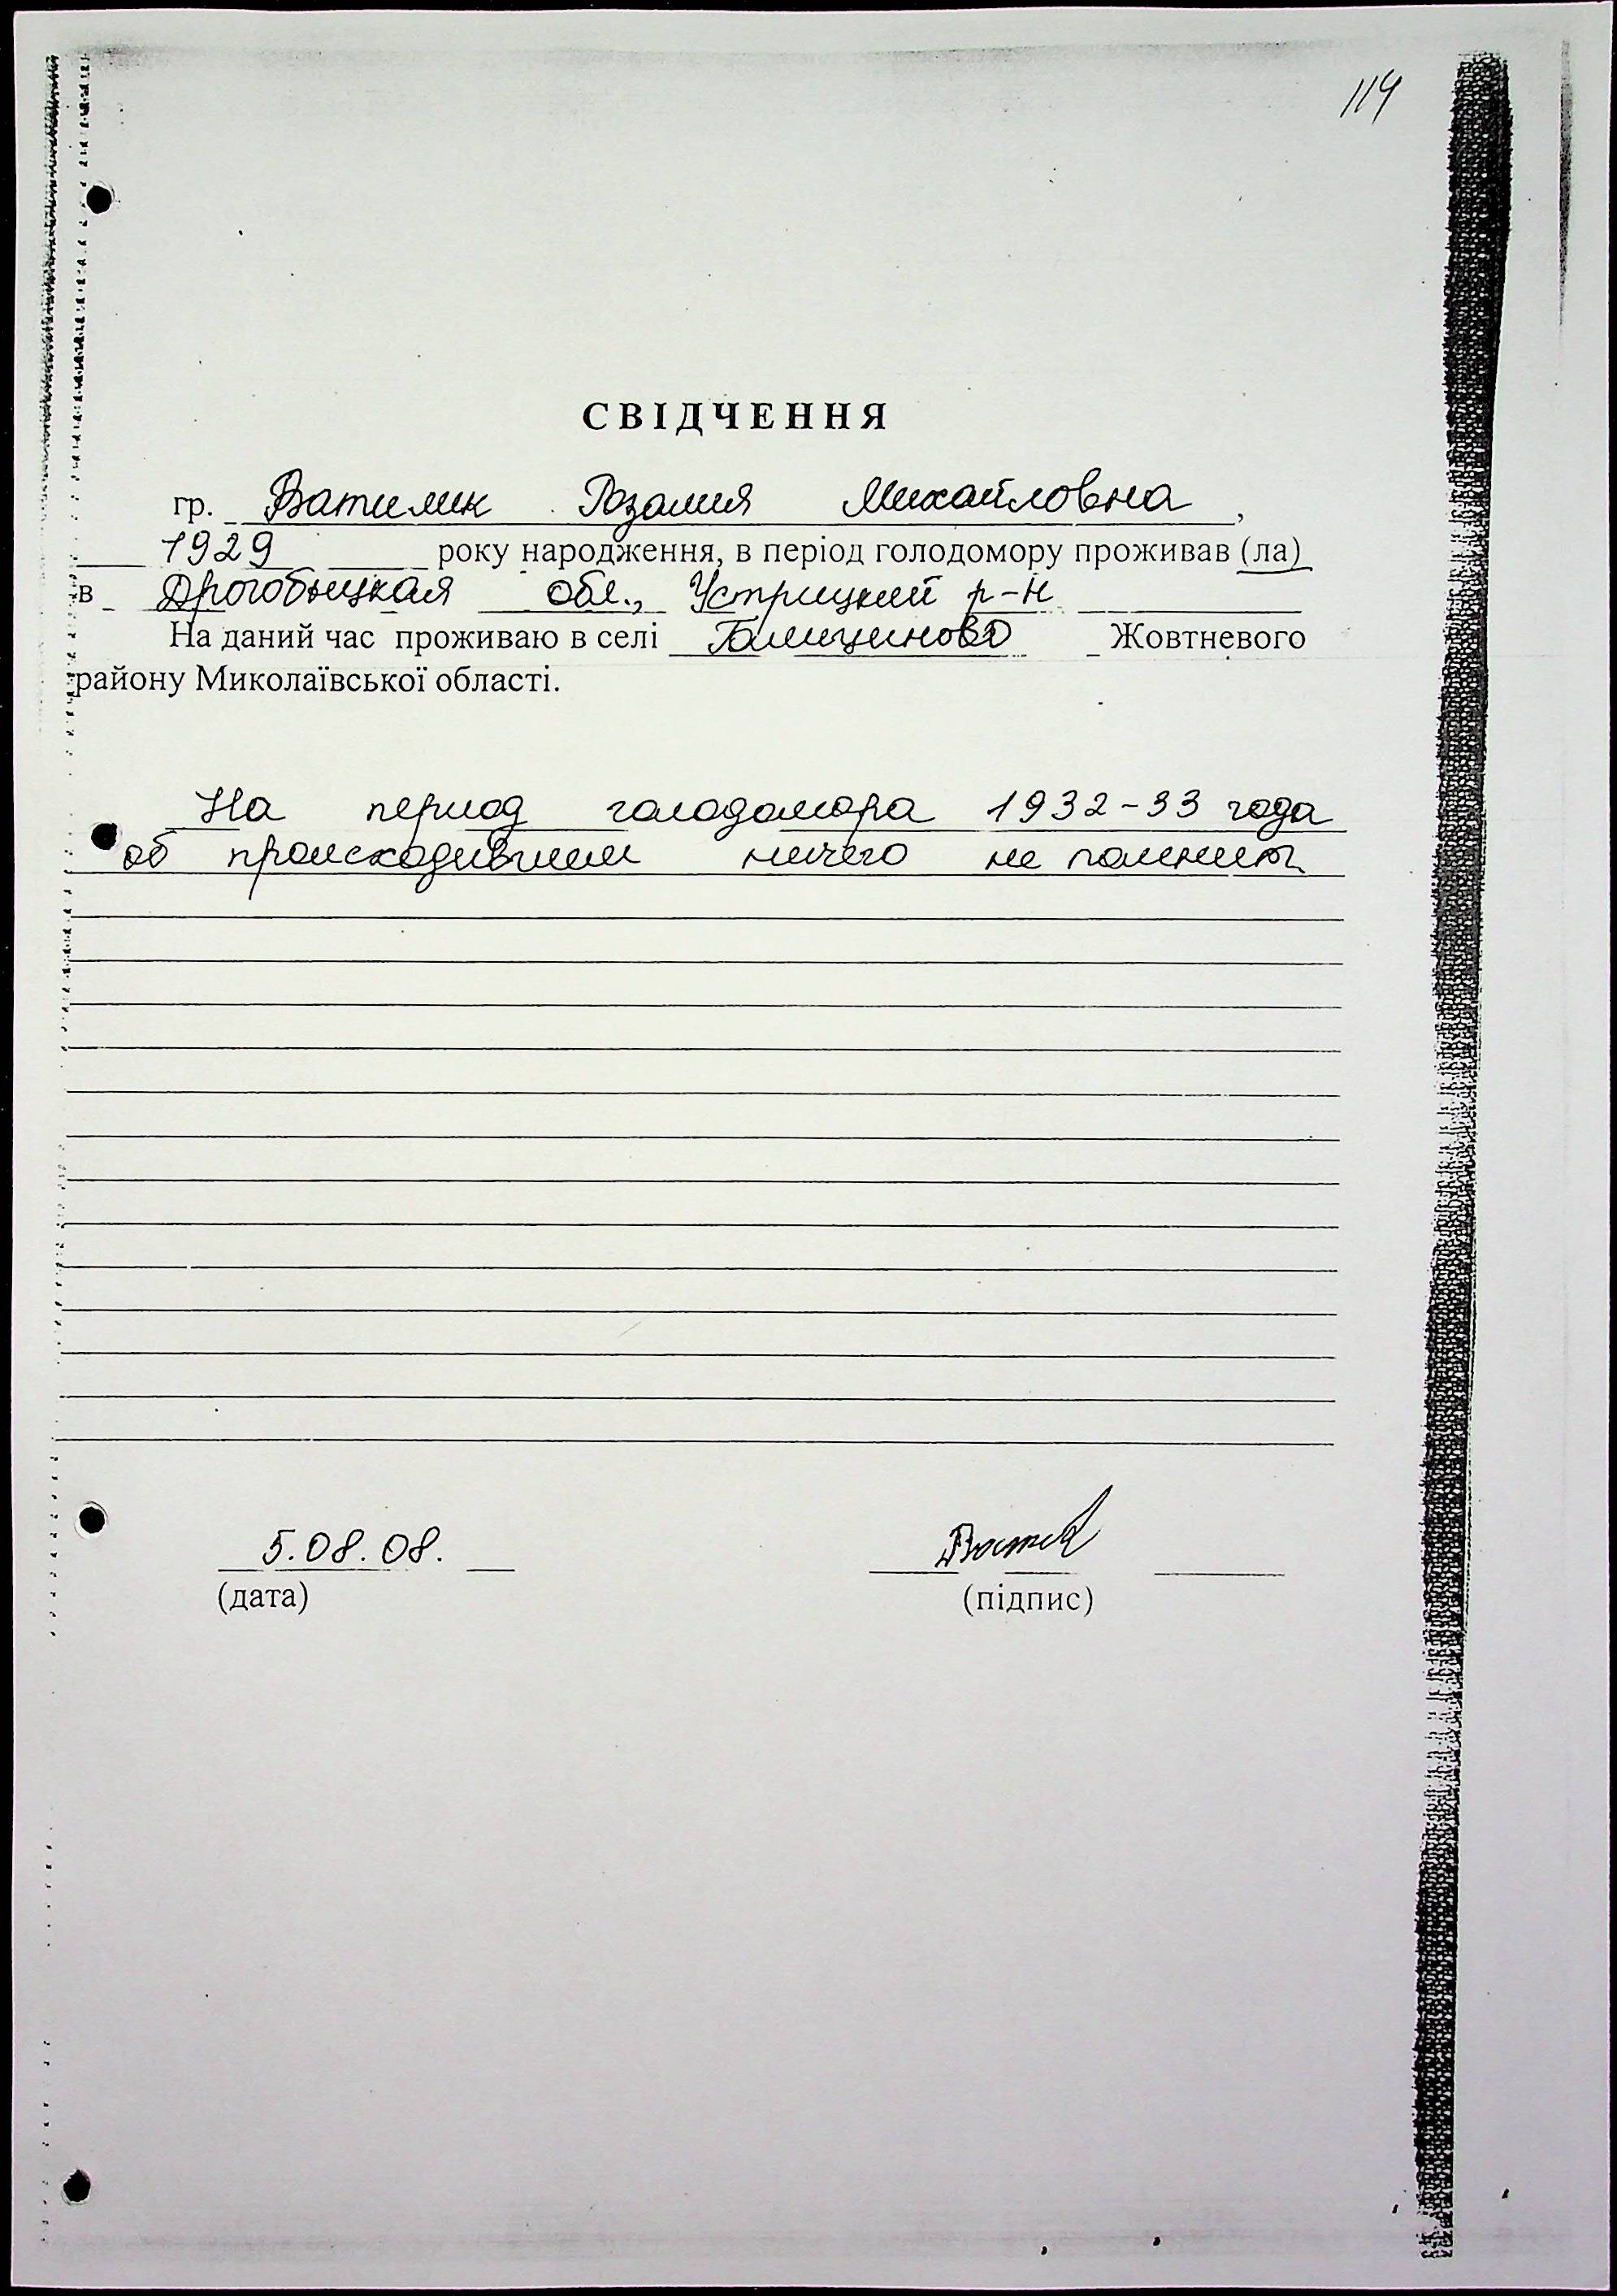 114
СВІДЧЕННЯ
гр. Ватилик Розалия Михайловна,
1929 року народження, в період голодомору проживав (ла)
в Дрогобыцкая обл., Устрицкий р-н
На даний час проживаю в селі Галициново Жовтневого
району Миколаївської області.
На период голодомора 1932-33 года
об происходившем ничего не помнит
5.08.08.
(дата) (підпис)